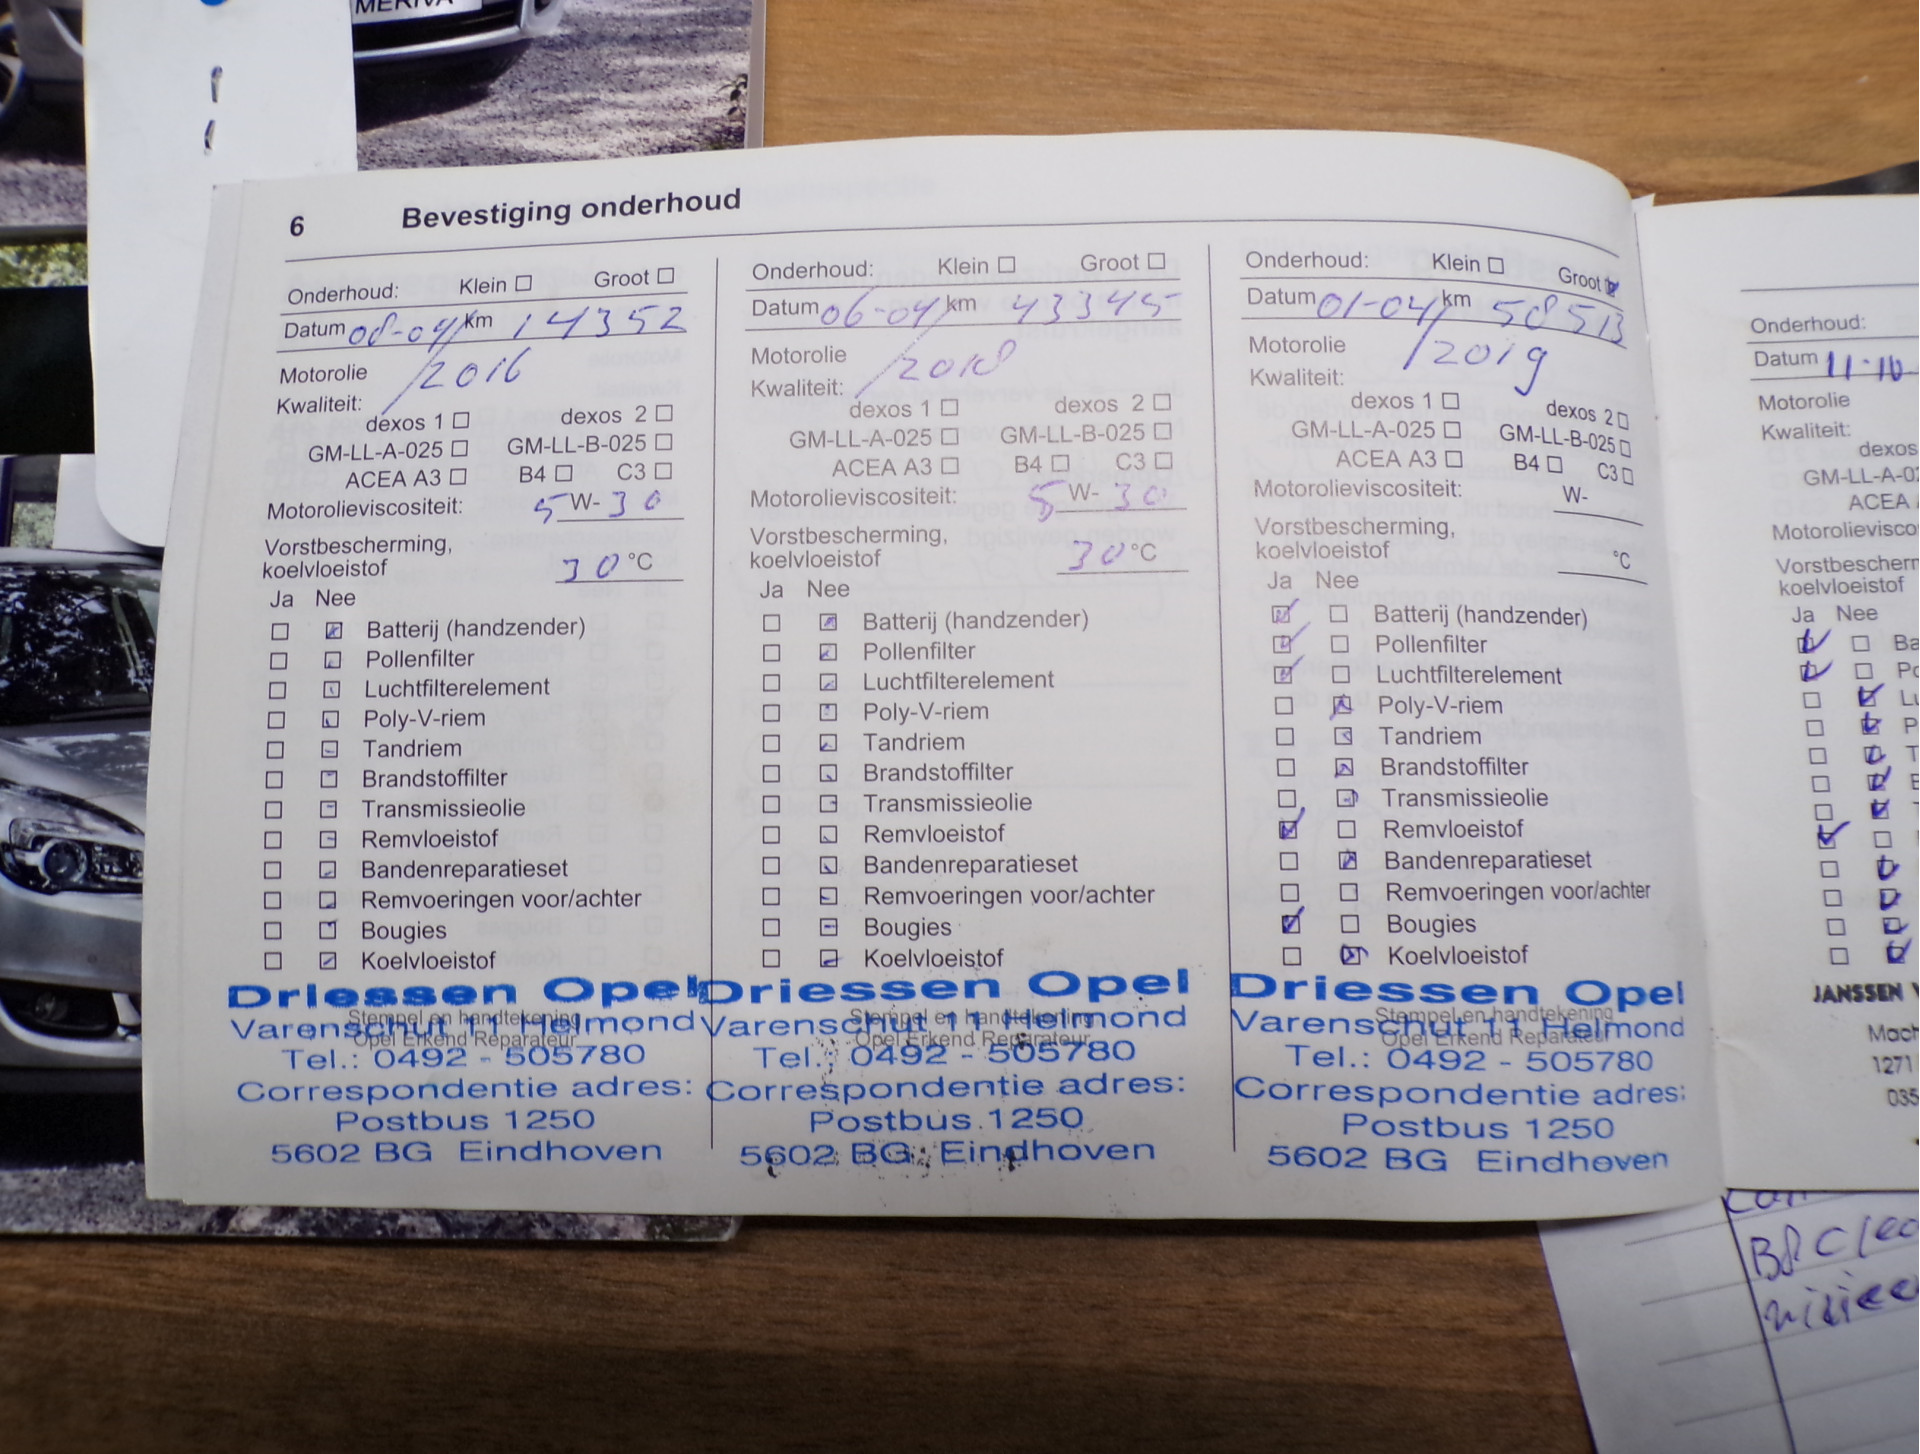 MERIVA
6 Bevestiging onderhoud
Onderhoud: Klein Groot
Datum 08-04 km 14352
/2016
Motorolie
Kwaliteit:
dexos 1 dexos 2
GM-LL-A-025 GM-LL-B-025
ACEA A3 B4 C3
Motorolieviscositeit: 5 W- 30
Vorstbescherming,
koelvloeistof 30 °C
Ja Nee
Batterij (handzender)
Pollenfilter
Luchtfilterelement
Poly-V-riem
Tandriem
Brandstoffilter
Transmissieolie
Remvloeistof
Bandenreparatieset
Remvoeringen voor/achter
Bougies
Koelvloeistof
Stempel en handtekening
Opel Erkend Reparateur
Driessen Opel
Varenschut 11 Helmond
Tel.: 0492 - 505780
Correspondentie adres:
Postbus 1250
5602 BG Eindhoven
Onderhoud: Klein Groot
Datum 06-04 km 43345
/2018
Motorolie
Kwaliteit:
dexos 1 dexos 2
GM-LL-A-025 GM-LL-B-025
ACEA A3 B4 C3
Motorolieviscositeit: 5 W- 30
Vorstbescherming,
koelvloeistof 30 °C
Ja Nee
Batterij (handzender)
Pollenfilter
Luchtfilterelement
Poly-V-riem
Tandriem
Brandstoffilter
Transmissieolie
Remvloeistof
Bandenreparatieset
Remvoeringen voor/achter
Bougies
Koelvloeistof
Stempel en handtekening
Opel Erkend Reparateur
Driessen Opel
Varenschut 11 Helmond
Tel.: 0492 - 505780
Correspondentie adres:
Postbus 1250
5602 BG Eindhoven
Onderhoud: Klein Groot
Datum 01-04 km 58513
/2019
Motorolie
Kwaliteit:
dexos 1 dexos 2
GM-LL-A-025 GM-LL-B-025
ACEA A3 B4 C3
Motorolieviscositeit: W-
Vorstbescherming,
koelvloeistof °C
Ja Nee
Batterij (handzender)
Pollenfilter
Luchtfilterelement
Poly-V-riem
Tandriem
Brandstoffilter
Transmissieolie
Remvloeistof
Bandenreparatieset
Remvoeringen voor/achter
Bougies
Koelvloeistof
Stempel en handtekening
Opel Erkend Reparateur
Driessen Opel
Varenschut 11 Helmond
Tel.: 0492 - 505780
Correspondentie adres:
Postbus 1250
5602 BG Eindhoven
Onderhoud:
Datum 11-10
Motorolie
Kwaliteit:
dexos
GM-LL-A-02
ACEA
Motorolievisco
Vorstbescherm
koelvloeistof
Ja Nee
Ba
Po
Lu
P
T
JANSSEN
Mach
1271
035